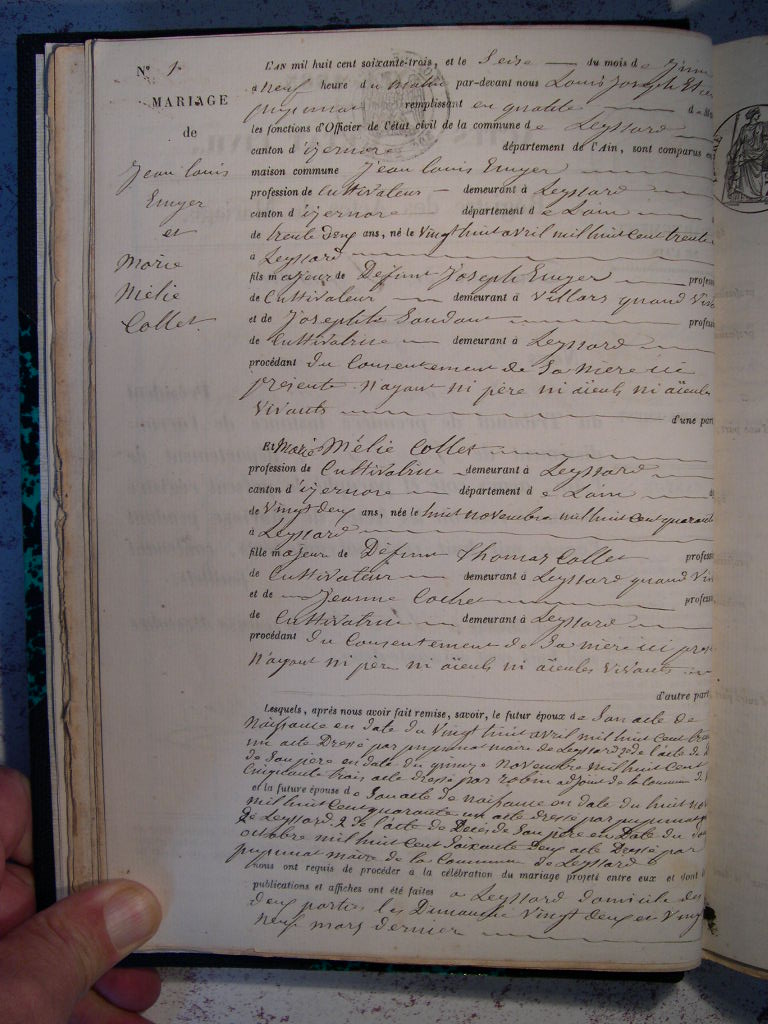 N° 1
MARIAGE
de
Jean Louis
Emyer
et
Marie
Mélie
Collet.
L'AN mil huit cent soixante-trois, et le Seize du mois de
à neuf heure du matin par-devant nous Louis Joseph
pupunat remplissant en qualité de
les fonctions d'Officier de l'état civil de la commune de Leyssard
canton d'izernore département de l'Ain, sont comparus en
maison commune Jean Louis Emyer
profession de Cultivateur demeurant à Leyssard
canton d'izernore département de Lain
de trente deux ans, né le Vingt huit avril mil huit cent trente
à Leyssard
fils majeur de Défunt Joseph Emyer
de Cultivateur demeurant à Villars quand
et de Josephte
de Cultivatrice demeurant à Leyssard
procédant du Consentement de Sa mere ici
présente. N'ayant ni père ni aïeuls ni aïeules
Vivants
d'une part
Et Marie Mélie Collet
profession de Cultivatrice demeurant à Leyssard
canton d'izernore département de Lain
de Vingt deux ans, née le huit novembre mil huit cent quarante
à Leyssard
fille majeure de Défunt Thomas Collet
de Cultivateur demeurant à Leyssard quand
et de Jeanne
de Cultivatrice demeurant à Leyssard
procédant du Consentement de Sa mère ici
N'ayant ni père ni aïeuls ni aïeules Vivants
d'autre part,
Lesquels, après nous avoir fait remise, savoir, le futur époux de Son acte de
Naissance en date du Vingt huit avril mil huit cent
un acte Dressé par pupunat maire de Leyssard 2° de l'acte de
de Son père en date du quinze Novembre mil huit cent
Cinquante trois acte dressé par robin adjoint de la Commune de
et la future épouse de Son acte de naissance en date du huit
mil huit cent quarante un acte dressé par pupunat
de Leyssard. 2° de l'acte de Décès de Son père en Date du
octobre mil huit cent Soixante deux acte Dressé par
pupunat maire de la Commune de Leyssard
nous ont requis de procéder à la célébration du mariage projeté entre eux et dont
publications et affiches ont été faites à Leyssard domicile des
deux parties les Dimanche Vingt deux et Vingt
Neuf mars dernier